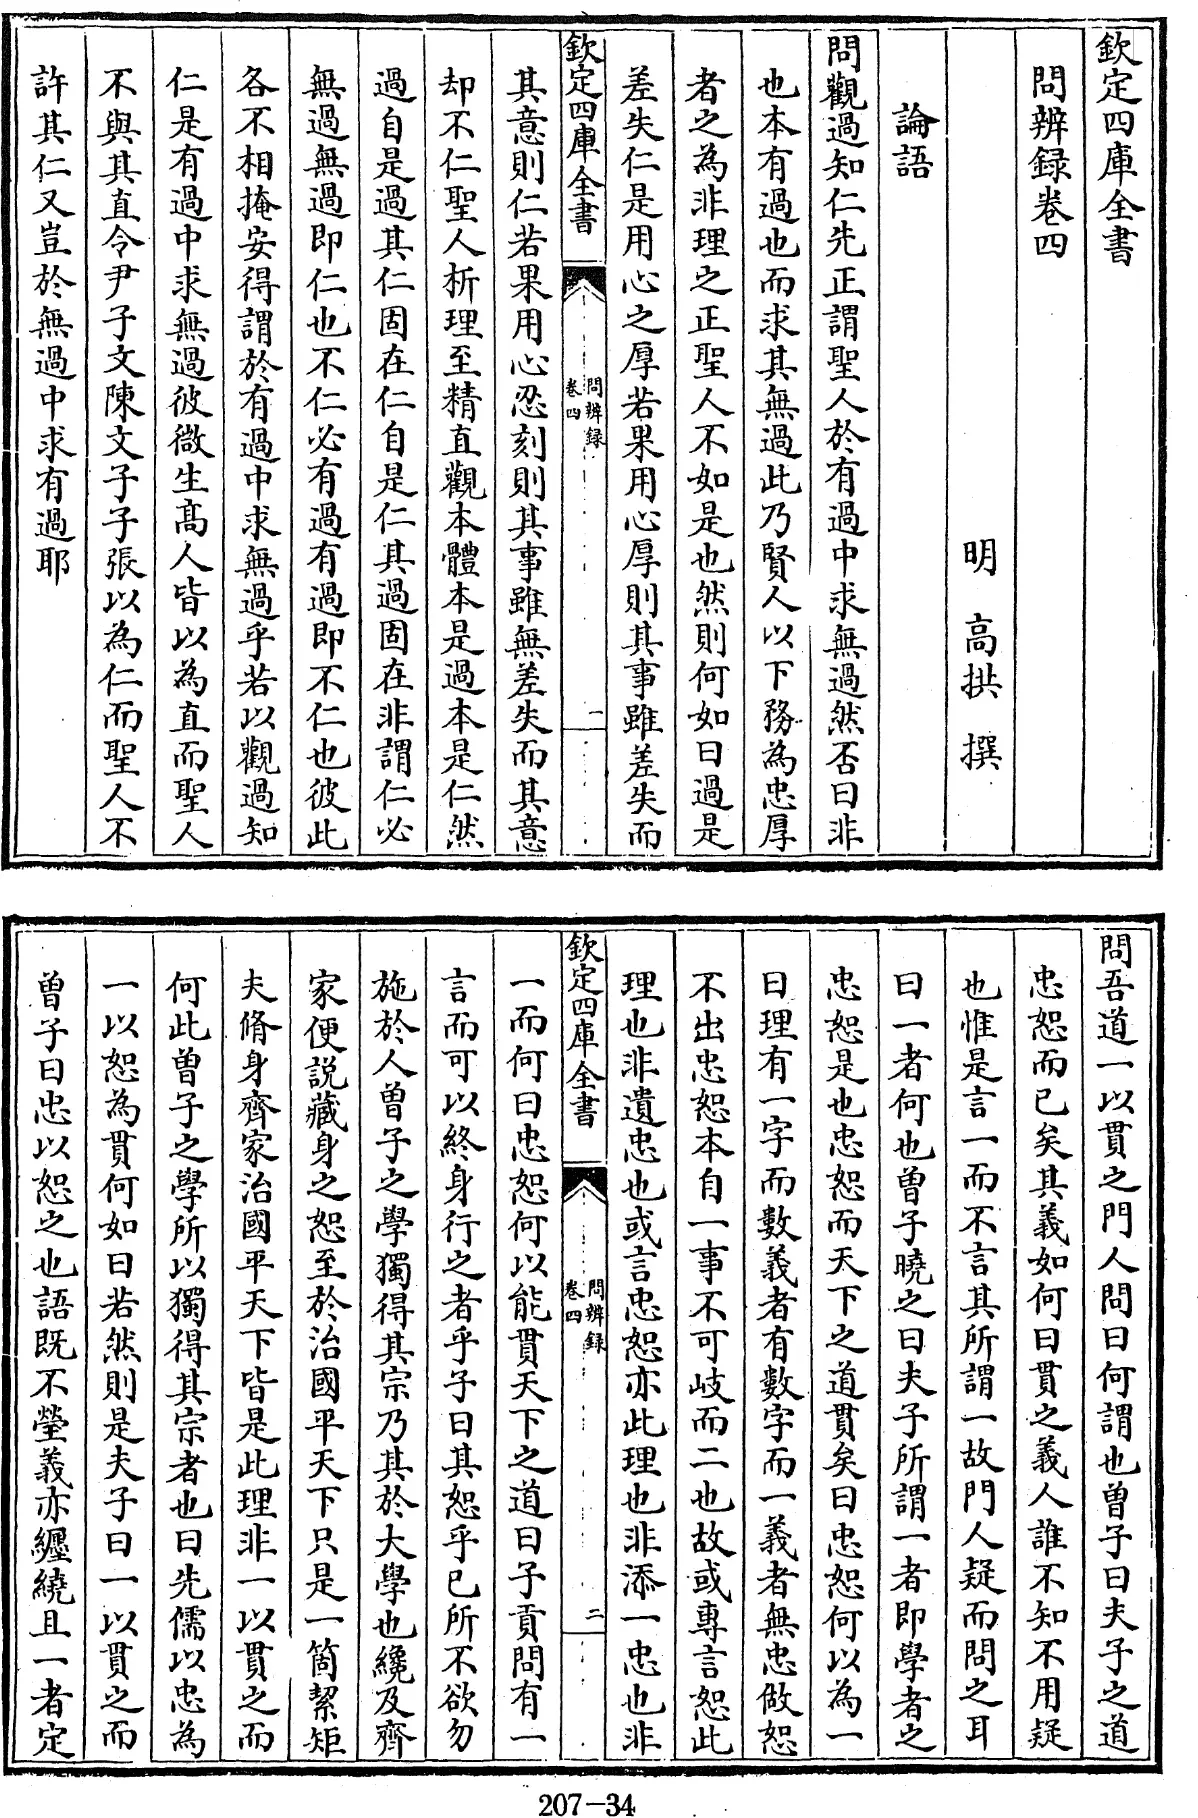 欽定四庫全書
問辨録卷四
明 高拱 撰
論語
問觀過知仁先正謂聖人於有過中求無過然否曰非
也本有過也而求其無過此乃賢人以下務為忠厚
者之為非理之正聖人不如是也然則何如曰過是
差失仁是用心之厚若果用心厚則其事雖差失而
欽定四庫全書
問辨録
卷四
一
其意則仁若果用心忍刻則其事雖無差失而其意
却不仁聖人析理至精直觀本體本是過本是仁然
過自是過其仁固在仁自是仁其過固在非謂仁必
無過無過即仁也不仁必有過有過即不仁也彼此
各不相掩安得謂於有過中求無過乎若以觀過知
仁是有過中求無過彼微生高人皆以為直而聖人
不與其直令尹子文陳文子子張以為仁而聖人不
許其仁又豈於無過中求有過耶
問吾道一以貫之門人問曰何謂也曾子曰夫子之道
忠恕而已矣其義如何曰貫之義人誰不知不用疑
也惟是言一而不言其所謂一故門人疑而問之耳
曰一者何也曾子曉之曰夫子所謂一者即學者之
忠恕是也忠恕而天下之道貫矣曰忠恕何以為一
曰理有一字而數義者有數字而一義者無忠做恕
不出忠恕本自一事不可歧而二也故或專言恕此
理也非遺忠也或言忠恕亦此理也非添一忠也非
欽定四庫全書
問辨録
卷四
二
一而何曰忠恕何以能貫天下之道曰子貢問有一
言而可以終身行之者乎子曰其恕乎己所不欲勿
施於人曾子之學獨得其宗乃其於大學也纔及齊
家便説藏身之恕至於治國平天下只是一箇絜矩
夫脩身齊家治國平天下皆是此理非一以貫之而
何此曾子之學所以獨得其宗者也曰先儒以忠為
一以恕為貫何如曰若然則是夫子曰一以貫之而
曾子曰忠以恕之也語既不瑩義亦纏繞且一者定
207-34